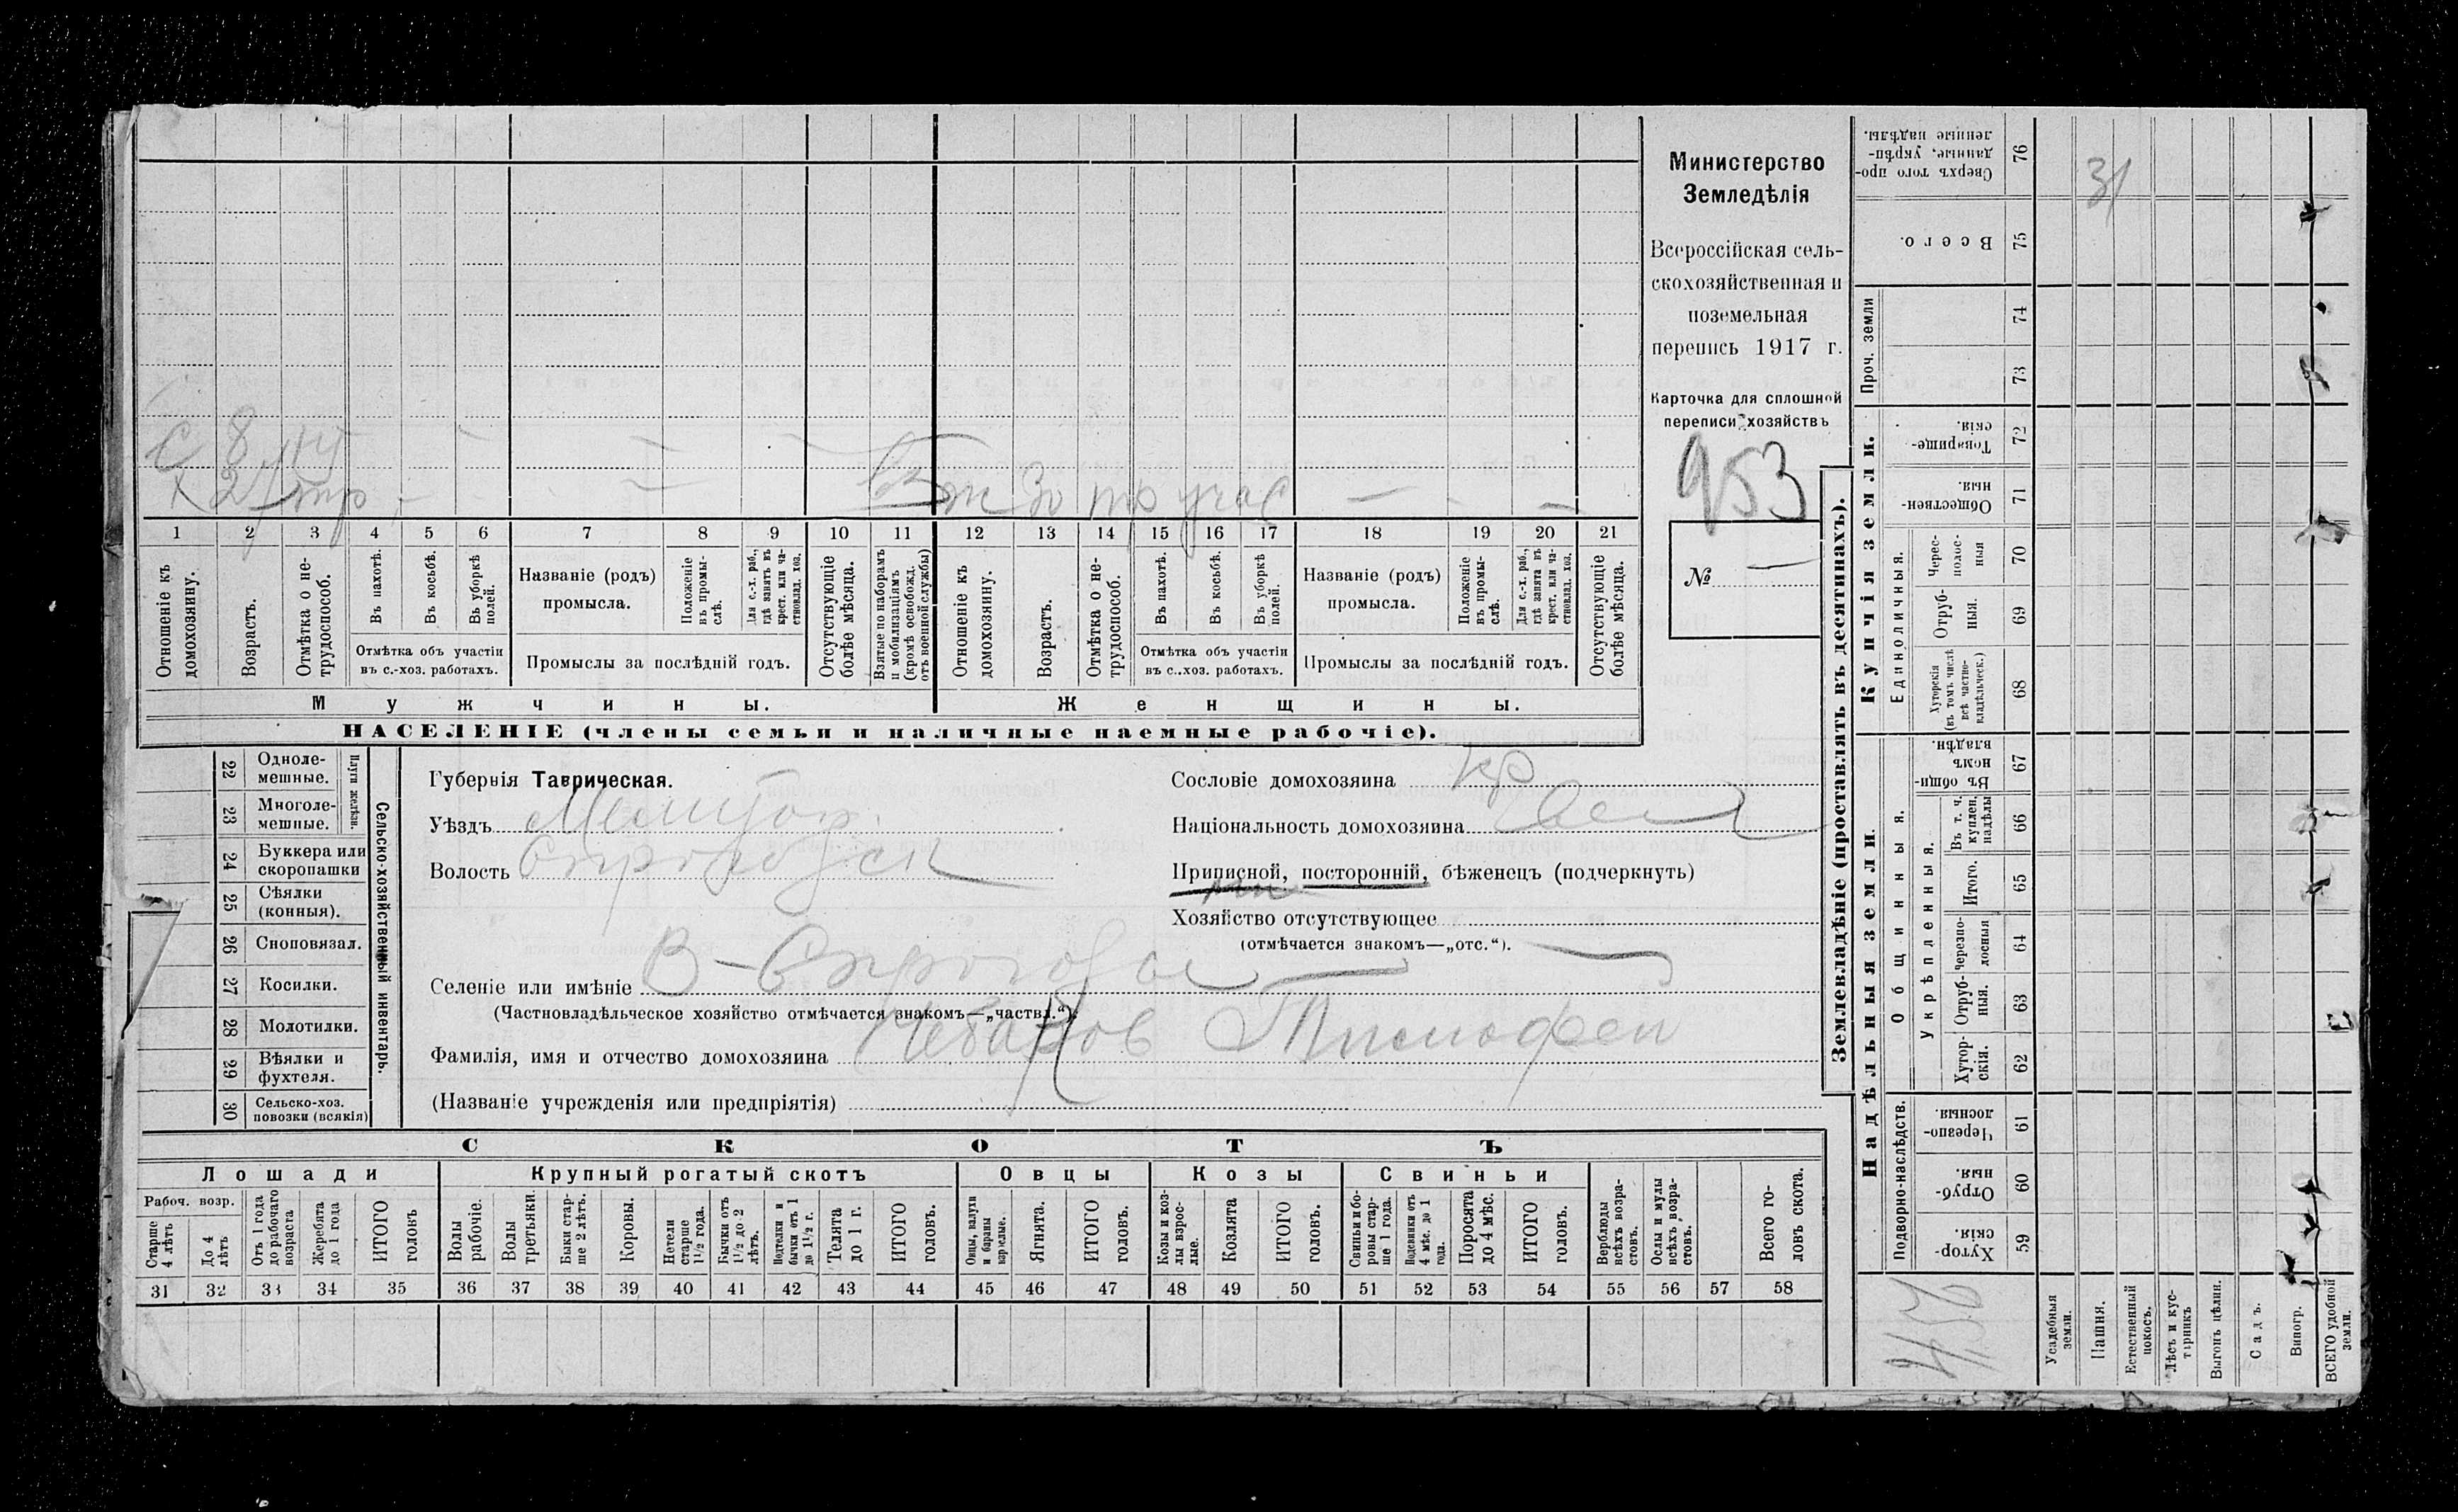 Министерство
Земледѣлія
Всероссійская сель-
скохозяйственная и
поземельная
перепись 1917 г.
Карточка для сплошной
переписи хозяйствъ
953
№ —
С 8
х 27 тр - - - вз ж 30 тр учас — - —
1 2 3 4 5 6 7 8 9 10 11 12 13 14 15 16 17 18 19 20 21
Отношеніе къ домохозяину.
Возрастъ.
Отмѣтка о не-трудоспособ.
Въ пахотѣ.
Въ косьбѣ.
Въ уборкѣ полей.
Отмѣтка объ участіи въ с.-хоз. работахъ.
Названіе (родъ) промысла.
Положеніе въ промы-слѣ.
Для с.-х. раб., гдѣ занятъ въ крест. или ча-стновлад. хоз.
Промыслы за послѣдній годъ.
Отсутствующіе болѣе мѣсяца.
Взятые по наборамъ и мобилизаціямъ (кромѣ освобожд. отъ военной службы)
Отношеніе къ домохозяину.
Возрастъ.
Отмѣтка о не-трудоспособ.
Въ пахотѣ.
Въ косьбѣ.
Въ уборкѣ полей.
Отмѣтка объ участіи въ с..хоз. работахъ.
Названіе (родъ) промысла.
Положеніе въ промы-слѣ.
Для с.-х. раб., гдѣ занята въ крест. или ча-стновлад. хоз.
Промыслы за послѣдній годъ.
Отсутствующіе болѣе мѣсяца.
Мужчины.
Женщины.
НАСЕЛЕНІЕ (члены семьи и наличные наемные рабочіе).
22 Одноле-мешные.
23 Многоле-мешные.
Плуги желѣзн.
24 Буккера или скоропашки
25 Сѣялки (конныя).
26 Сноповязал.
27 Косилки.
28 Молотилки.
29 Вѣялки и фухтеля.
30 Сельско-хоз. повозки (всякія)
Сельско-хозяйственный инвентарь.
Губернія Таврическая.
Уѣздъ Мелитоп.
Волость
Селеніе или имѣніе
(Частновладѣльческое хозяйство отмѣчается знакомъ—„частвл.“).
Фамилія, имя и отчество домохозяина Тимофей
(Названіе учрежденія или предпріятія)
Сословіе домохозяина кр
Національность домохозяина
Приписной, посторонній, бѣженецъ (подчеркнуть)
Хозяйство отсутствующее
(отмѣчается знакомъ—„отс.“). —
СКОТЪ
Лошади
Крупный рогатый скотъ
Овцы
Козы
Свиньи
Рабоч. возр.
Старше 4 лѣтъ
До 4 лѣтъ
Отъ 1 года до рабочаго возраста
Жеребята до 1 года
ИТОГО головъ
Волы рабочіе.
Волы третьяки.
Быки стар-ше 2 лѣтъ.
Коровы.
Нетели старше 1½ года.
Бычки отъ 1½ до 2 лѣтъ.
Подтелки и бычки отъ 1 до 1½ г.
Телята до 1 г.
ИТОГО головъ.
Овцы, валухи и бараны взрослые.
Ягнята.
ИТОГО головъ.
Козы и коз-лы взрос-лые.
Козлята
ИТОГО головъ.
Свиньи и бо-ровы стар-ше 1 года.
Подсвинки отъ 4 мѣс. до 1 года.
Поросята до 4 мѣс.
ИТОГО головъ.
Верблюды всѣхъ возра-стовъ.
Ослы и мулы всѣхъ возра-стовъ.
Всего го-ловъ скота.
31 32 33 34 35 36 37 38 39 40 41 42 43 44 45 46 47 48 49 50 51 52 53 54 55 56 57 58
Землевладѣніе (проставлять въ десятинахъ).
Надѣльныя земли.
Купчія земли.
Проч. земли
Подворно-наслѣдств.
Общинныя.
Укрѣпленныя.
Единоличныя.
59 Хутор-скія.
60 Отруб-ныя.
61 Черезпо-лосныя.
62 Хутор-скія.
63 Отруб-ныя.
64 Черезпо-лосныя
65 Итого.
66 Въ т. ч. куплен. надѣлы
67 Въ общи-номъ владѣн.
68 Хуторскія (въ томъ числѣ всѣ частно-владѣльческ.)
69 Отруб-ныя.
70 Черес-полос-ныя
71 Обществен-ныя.
72 Товарище-скія.
73
74
75 Всего.
76 Сверхъ того про-данные, укрѣп-ленные надѣлы.
31
Усадебныя земли.
Пашня.
Естественный покосъ.
Лѣсъ и кус-тарникъ
Выгонъ цѣлин.
Садъ.
Виногр.
ВСЕГО удобной земли.